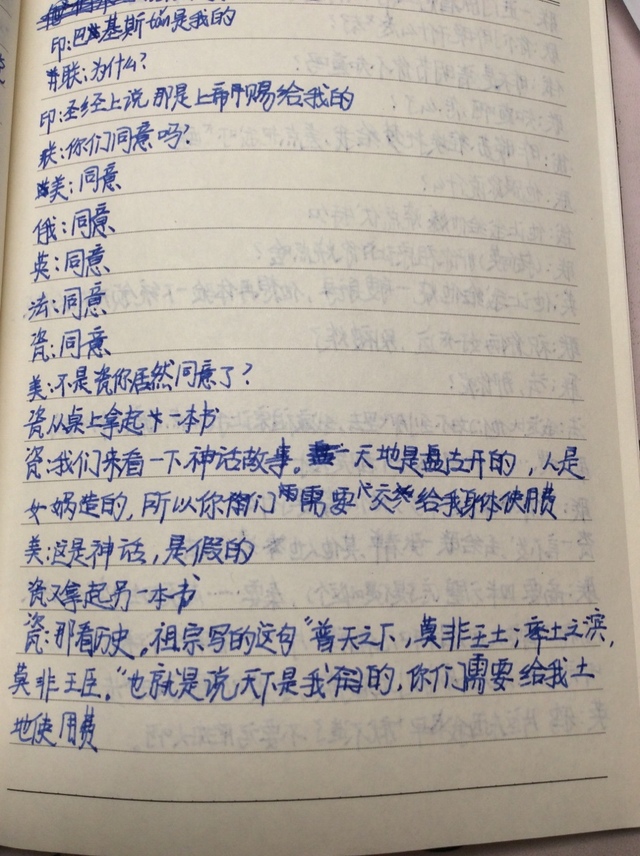 印:巴基斯tan是我的
联:为什么?
印:圣经上说那是上帝赐给我的
联:你们同意吗?
美:同意
俄:同意
英:同意
法:同意
瓷:同意
美:不是瓷你居然同意了?
瓷从桌上拿起一本书
瓷:我们来看一下神话故事。天地是盘古开的,人是
女娲造的,所以你们需要交给我身体使用费
美:这是神话,是假的
瓷又拿起另一本书
瓷:那看历史。祖宗写的这句“普天之下,莫非王土;率土之滨,
莫非王臣。”也就是说天下是我的,你们需要给我土
地使用费